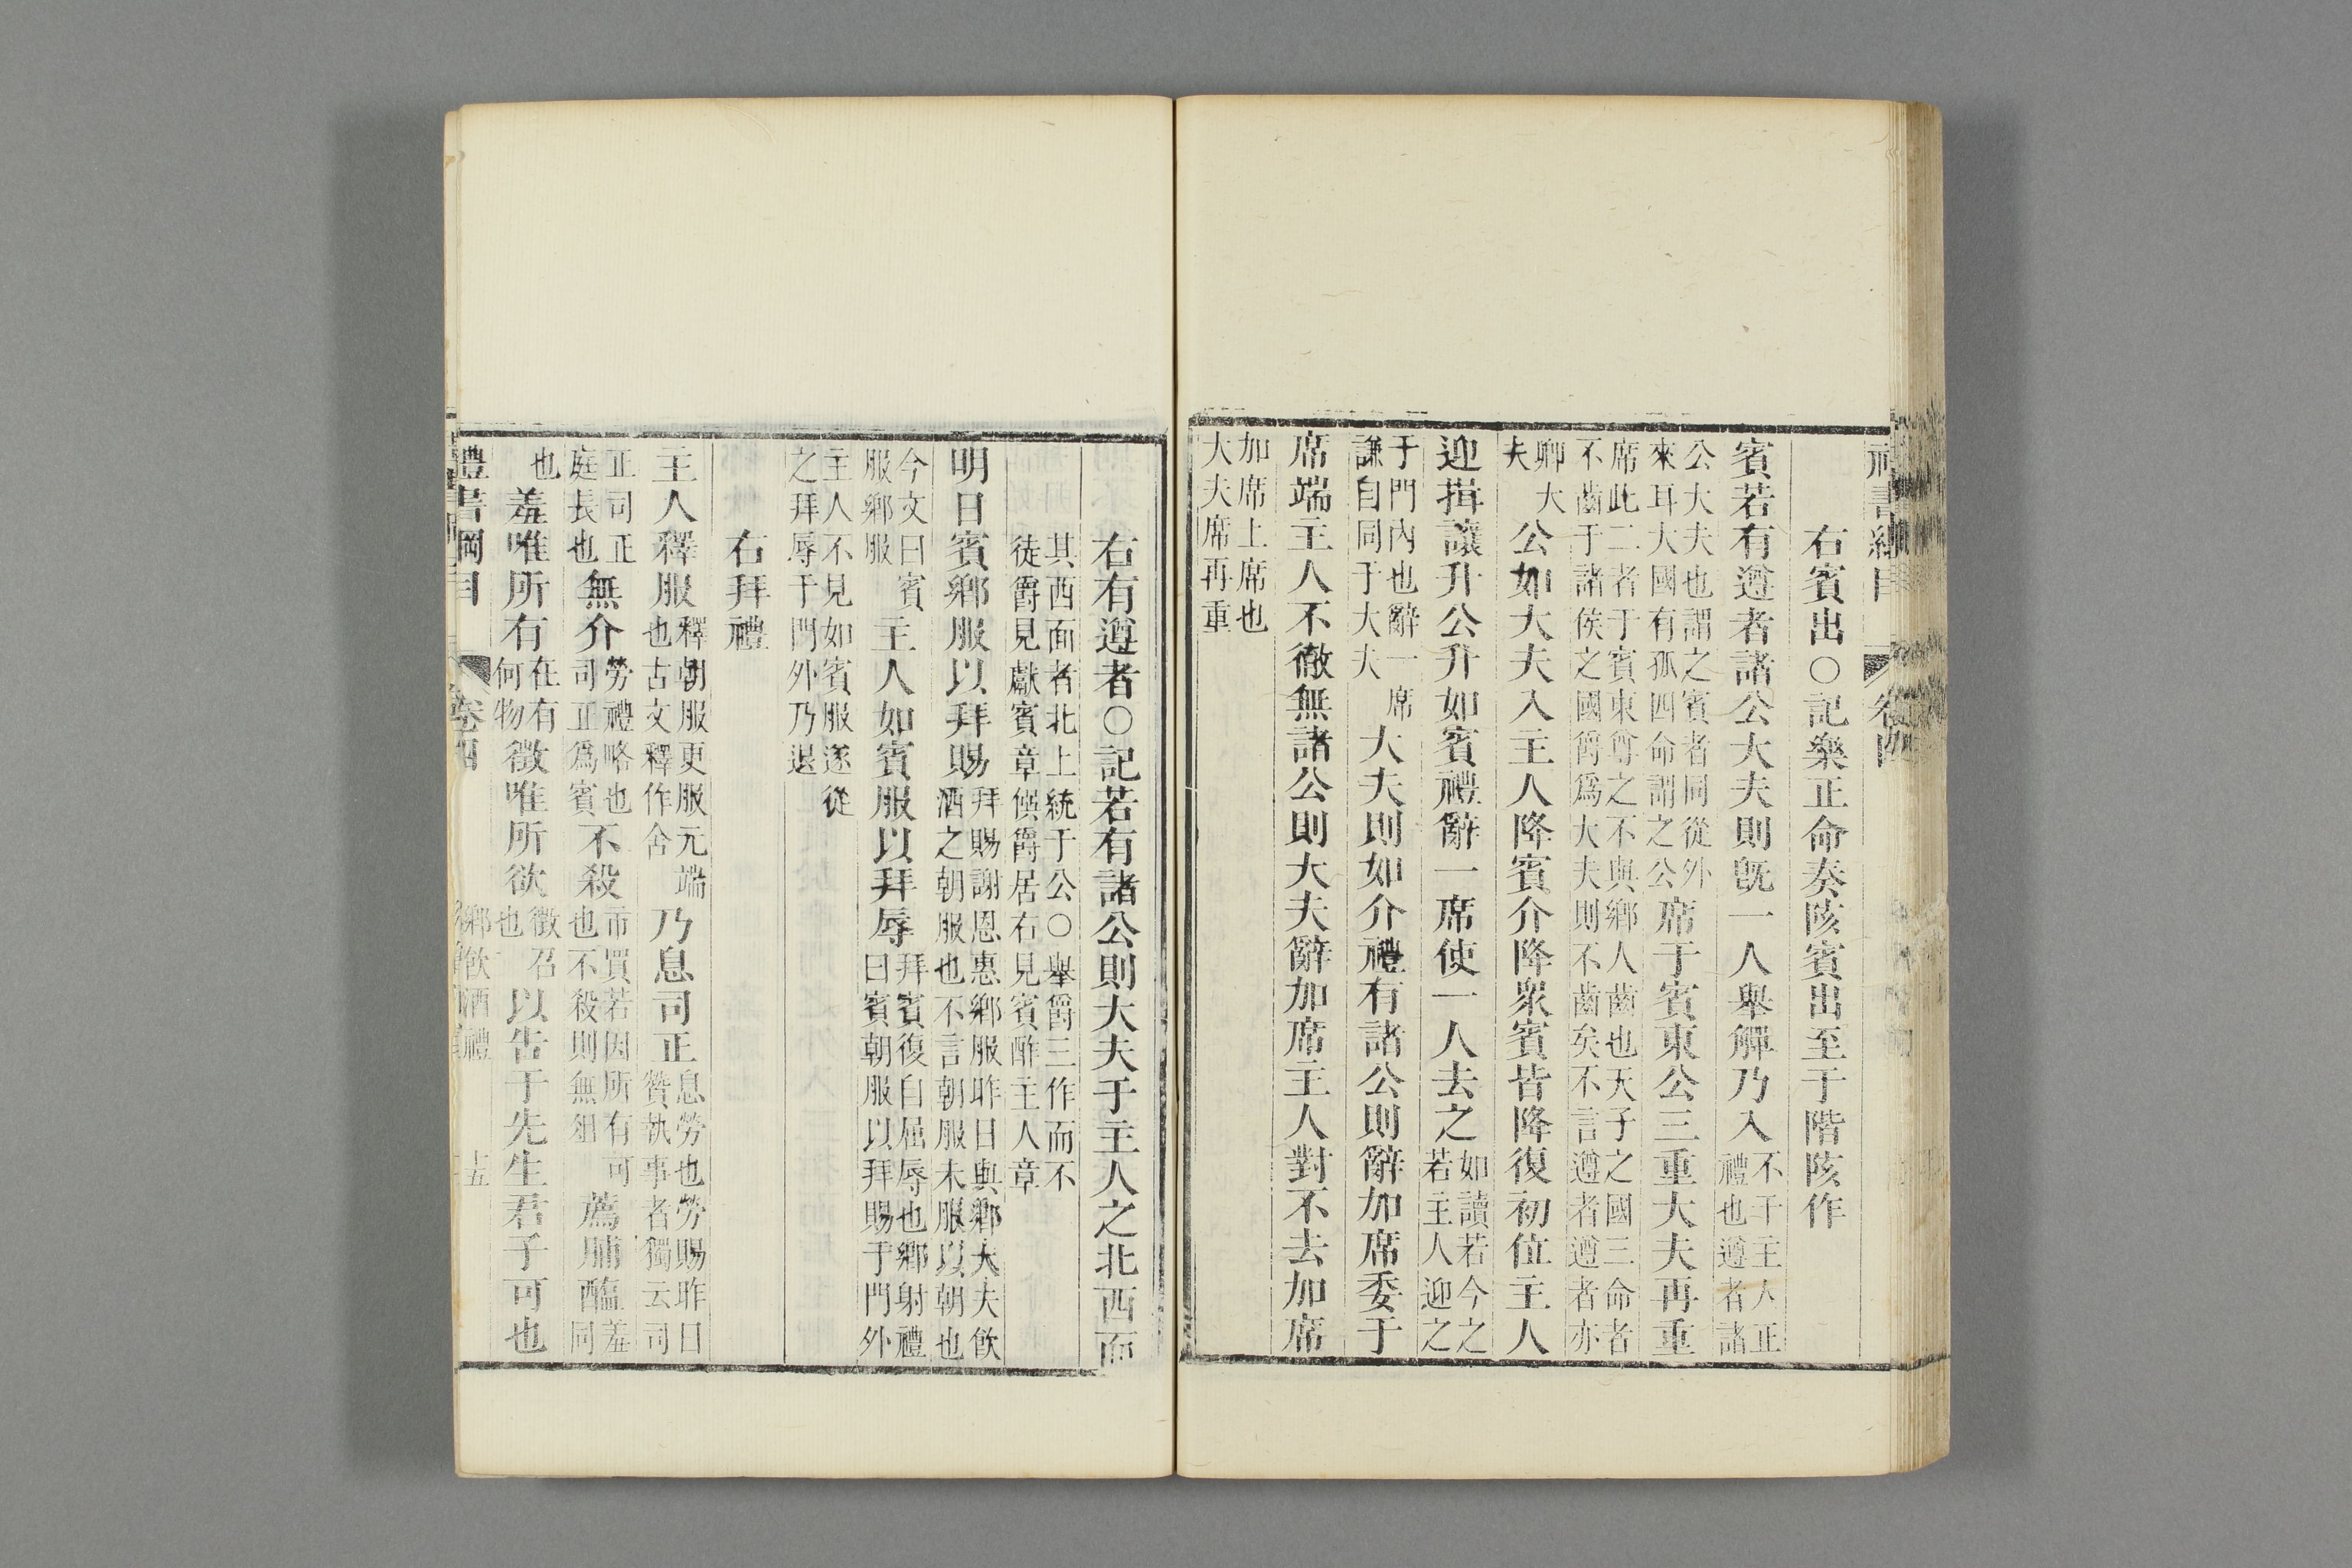 右賓出○記樂正命奏陔賓出至于階陔作
賓若有遵者諸公大夫則旣一人舉觶乃入不干主人正禮也遵者諸
公大夫也謂之賓者同從外來耳大國有孤四命謂之公席于賓東公三重大夫再重
席此二者于賓東尊之不與鄉人齒也天子之國三命者不齒于諸侯之國爵爲大夫則不齒矣不言遵者遵者亦
卿大夫公如大夫入主人降賓介降衆賓皆降復初位主人
迎揖讓升公升如賓禮辭一席使一人去之如讀若今之若主人迎之
于門內也辭一席謙自同于大夫大夫則如介禮有諸公則辭加席委于
席端主人不徹無諸公則大夫辭加席主人對不去加席
加席上席也大夫席再重
右有遵者○記若有諸公則大夫于主人之北西面
其西面者北上統于公○舉爵三作而不徒爵見獻賓章僎爵居右見賓酢主人章
明日賓鄉服以拜賜拜賜謝恩惠鄉服昨日與鄉大夫飮酒之朝服也不言朝服未服以朝也
今文曰賓服鄉服主人如賓服以拜辱拜賓復自屈辱也鄉射禮曰賓朝服以拜賜于門外
主人不見如賓服遂從之拜辱于門外乃退
右拜禮
主人釋服釋朝服更服元端也古文釋作舍乃息司正息勞也勞賜昨日贊執事者獨云司
正司正庭長也無介勞禮略也司正爲賓不殺市買若因所有可也不殺則無俎薦脯醢羞同
也羞唯所有在有何物徵唯所欲徵召也以告于先生君子可也
禮書綱目 卷四 鄉飮酒禮 十五